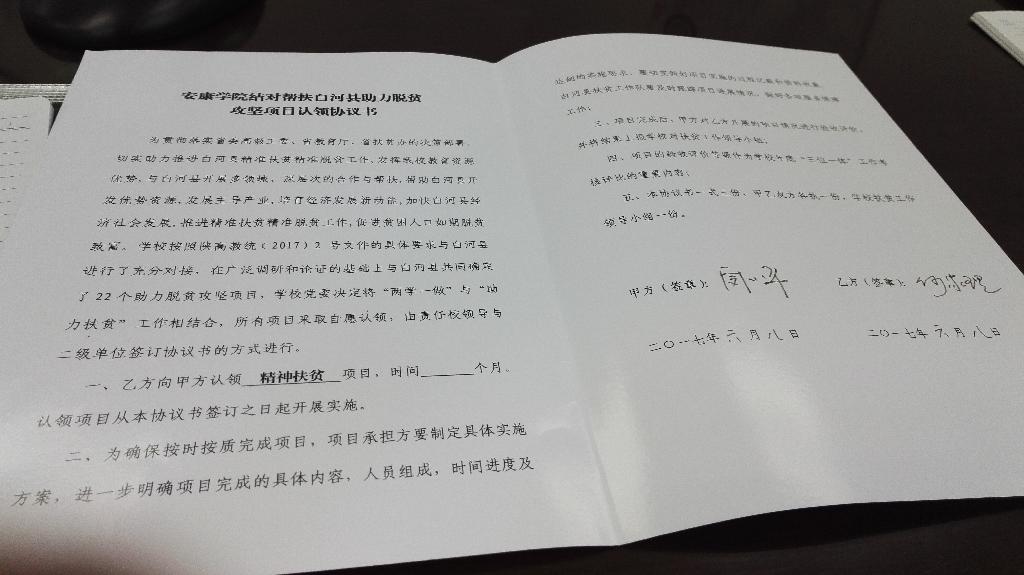 安康学院结对帮扶白河县助力脱贫
攻坚项目认领协议书
为贯彻落实省委高教工委、省教育厅、省扶贫办的决策部署，
切实助力推进白河县精准扶贫精准脱贫工作，发挥我校教育资源
优势，与白河县开展多领域、深层次的合作与帮扶，借助白河县开
发优势资源，发展主导产业，培育经济发展新动能，加快白河县经
济社会发展，推进精准扶贫精准脱贫工作，促进贫困人口如期脱贫
致富。学校按照陕高教统（2017）2 号文件的具体要求与白河县
进行了充分对接，在广泛调研和论证的基础上与白河县共同确定
了 22 个助力脱贫攻坚项目，学校党委决定将“两学一做”与“助
力扶贫”工作相结合，所有项目采取自愿认领，由责任校领导与
二级单位签订协议书的方式进行。
一、乙方向甲方认领 精神扶贫 项目，时间______个月。
认领项目从本协议书签订之日起开展实施。
二、为确保按时按质完成项目，项目承担方要制定具体实施
方案，进一步明确项目完成的具体内容，人员组成，时间进度及
达到的实施效果，
白河县扶贫工作队要及时跟踪项目进展情况，做好各项服务
工作；
三、项目完成后，甲方对乙方开展的项目情况进行验收评价，
并将结果上报学校对扶贫工作领导小组；
四、项目的验收评价等级作为学校年底“三位一体”工作考
核评比的重要内容；
五、本协议书一式三份，甲乙双方各执一份，学校扶贫工作
领导小组一份。
甲方（签章）：
乙方（签章）：
二〇一七年六月八日
二〇一七年六月八日